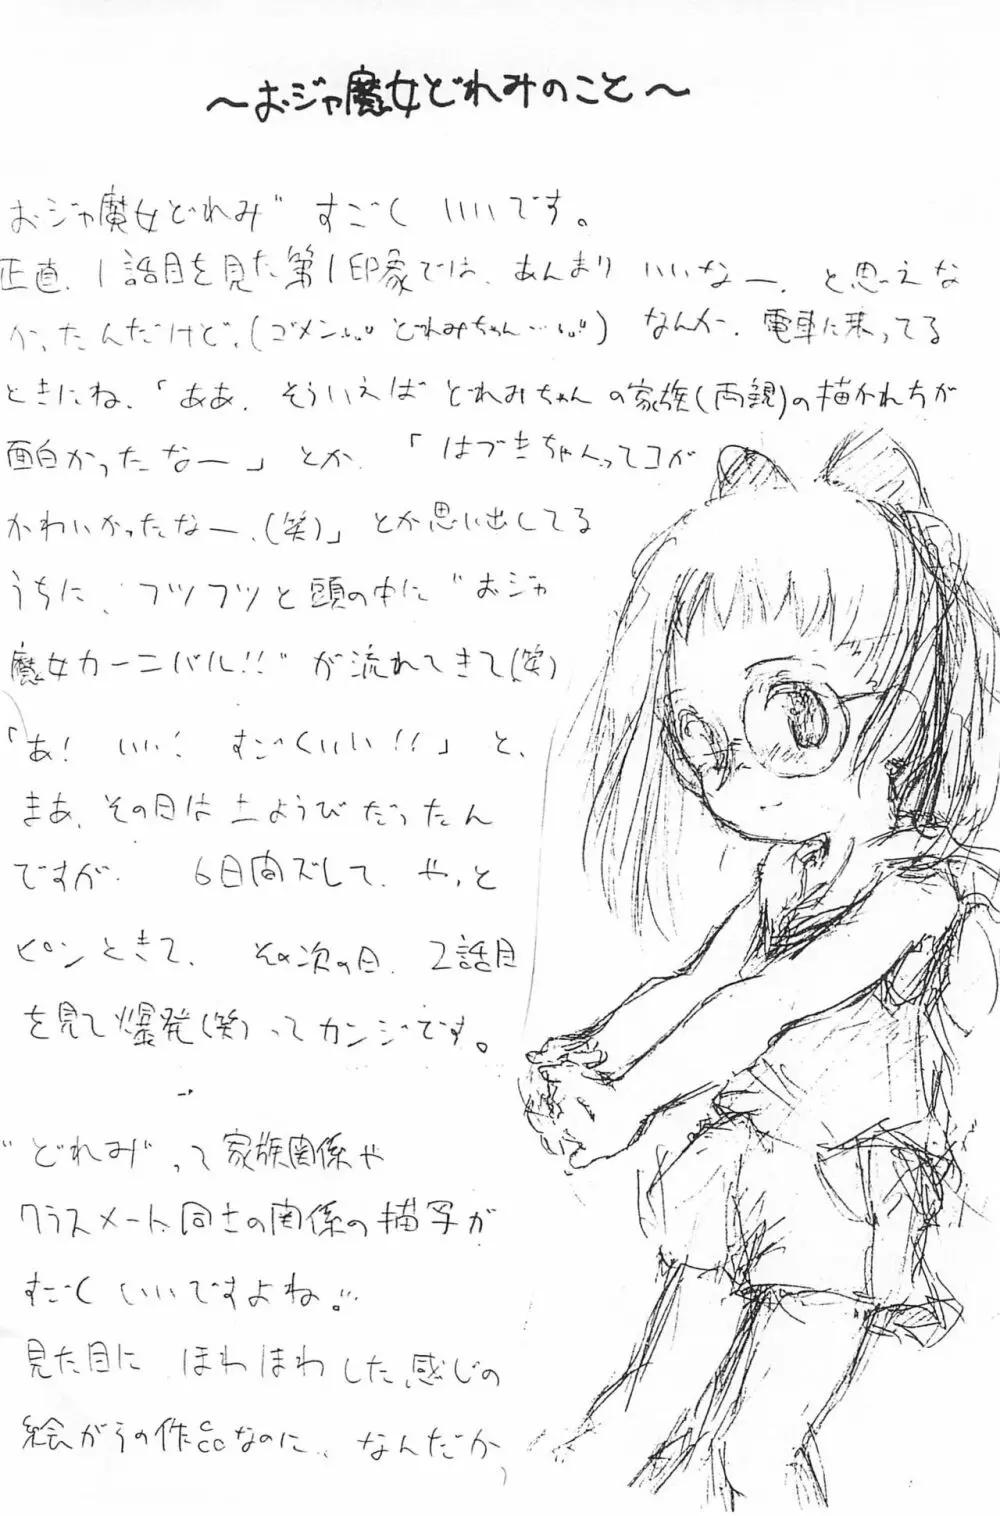 ～おジャ魔女どれみのこと～
おジャ魔女どれみ" すごく いいです。
正直、1話目を見た第1印象では、あんまり いいなー、と思えな
かったんだけど、(ゴメン… どれみちゃん…) なんか、電車に乗ってる
ときにね、「ああ、そういえば どれみちゃんの家族(両親)の描かれ方が
面白かったなー」とか、「はづきちゃんってコが
かわいかったなー、(笑)」とか思い出してる
うちに、フツフツと頭の中に "おジャ
魔女カーニバル!!" が流れてきて(笑)
「あ! いい! すごくいい!!」と、
まあ、その日は土ようびだったん
ですが、 6日間ズレて、やっと
ピンときて、 その次の日、2話目
を見て爆発(笑)ってカンジです。
"どれみ"って家族関係や
クラスメート同士の関係の描写が
すごく いいですよね。
見た目に ほわほわした感じの
絵がらの作品なのに、なんだか、